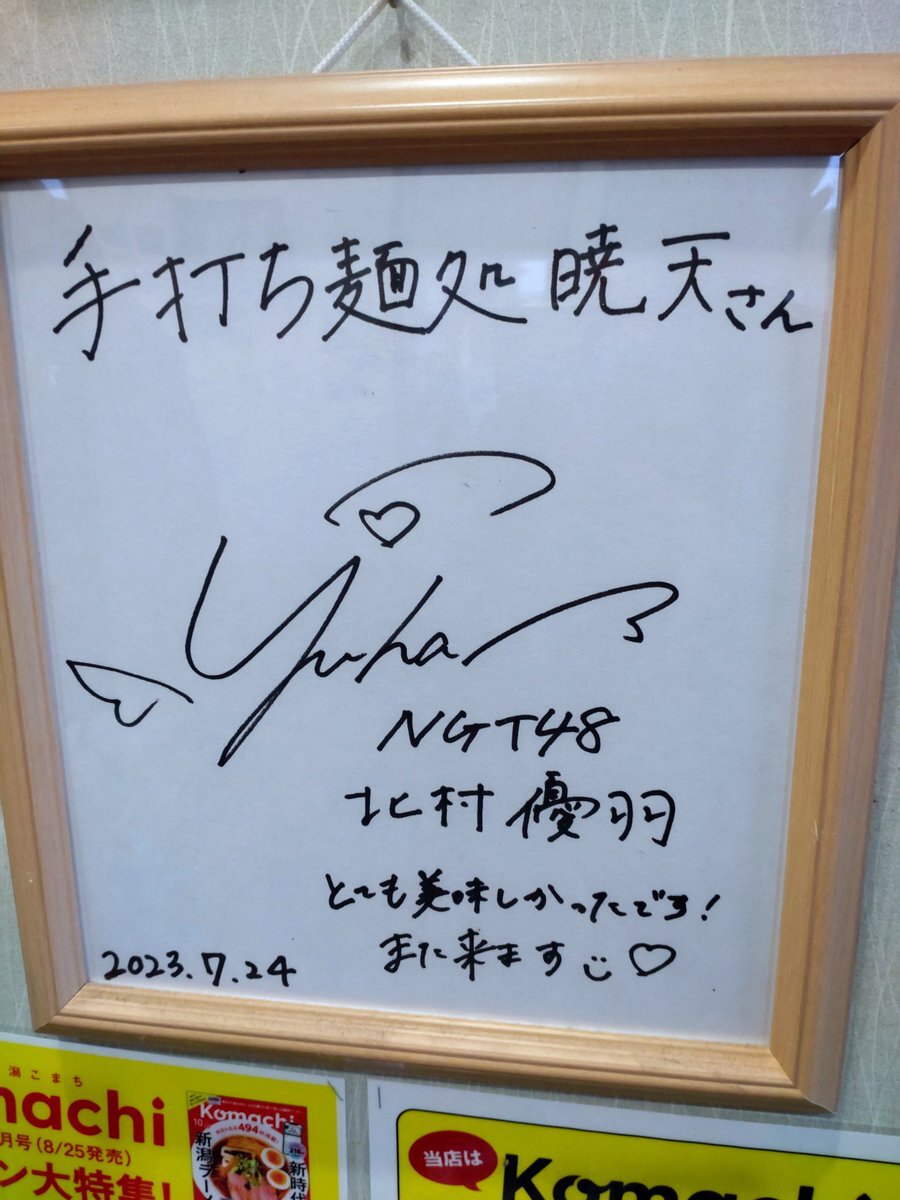 手打ち麺処 暁天さん
Yuha
NGT48
北村優羽
とても美味しかったです!
また来ます
2023.7.24
潟こまち
machi
月号(8/25発売)
ン大特集!
Komachi
10
494
新潟ラー
新時代
当店は
Komachi